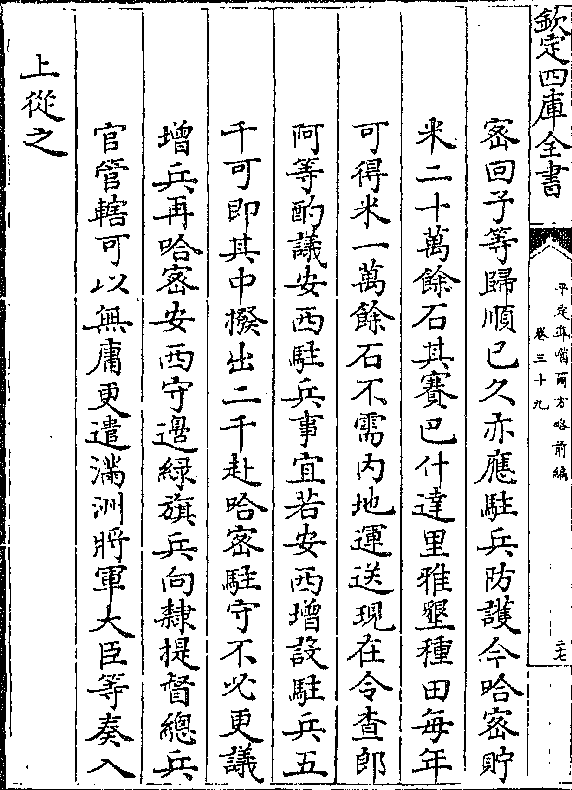 欽定四庫全書
平定準噶爾方略前編
卷三十九
二七
密回子等歸順已久亦應駐兵防護今哈密貯
米二十萬餘石其賽巴什達里雅墾種田每年
可得米一萬餘石不需内地運送現在令查郎
阿等酌議安西駐兵事宜若安西增設駐兵五
千可即其中撥出二千赴哈密駐守不必更議
增兵再哈密安西守邊綠旗兵向隸提督總兵
官管轄可以無庸更遣滿洲將軍大臣等奏入
上從之